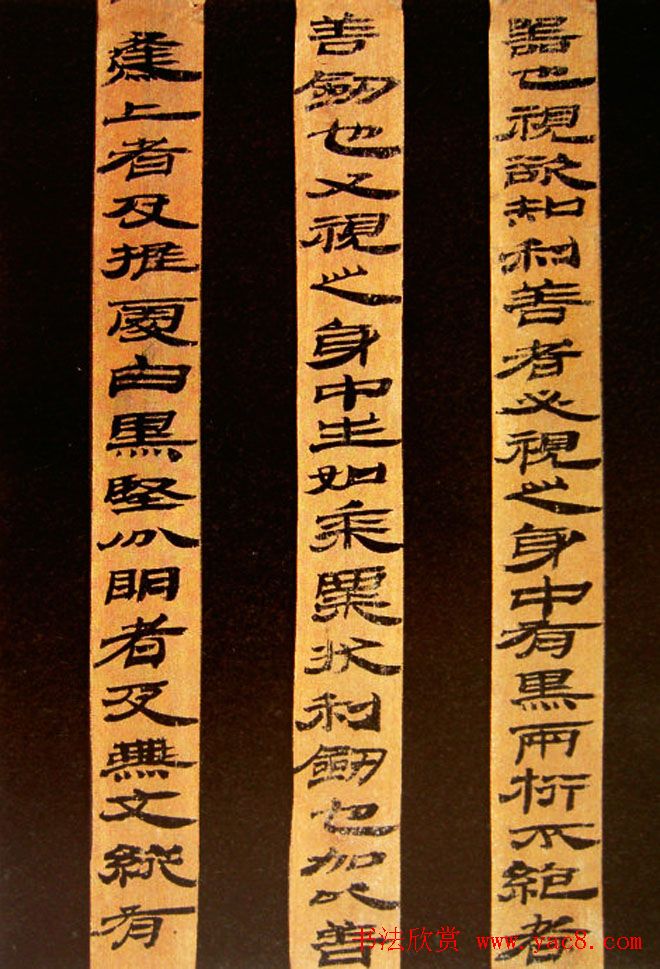 器也視欲知利善者必視之身中有黑兩桁不絕者
善劍也又視之身中生如黍粟狀利劍也加以善
逢上者及推處白黑堅分明者及無文縱有
书法欣赏 www.yac8.com